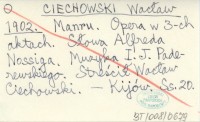 CIECHOWSKI Wacław
1902. Manru. Opera w 3-ch
aktach. Słowa Alfreda
Nossiga. Muzyka I. J. Pade-
rewskiego. Streścił Wacław
Ciechowski. — Kijów. Ss. 20.